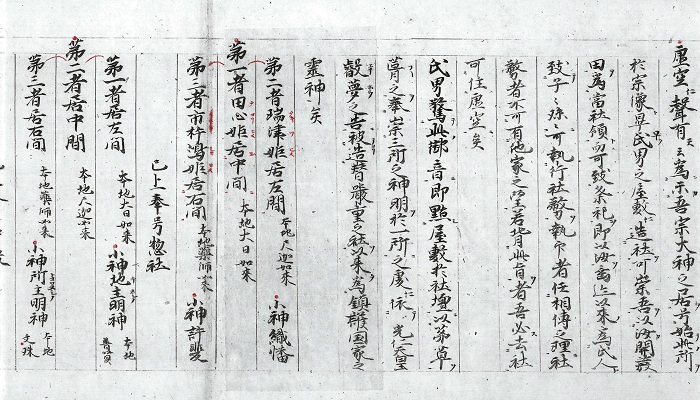 虚空ニ聲有云爲示吾宗大神之居号始此所
於宗像早氏男之屋敷造社可崇吾以汝開發
田爲當社領而可致祭祀即以汝 以来爲氏人
致子々孫可執行社務執印者任相傳之理社
務者不可有他家之望若背此旨者吾必去社
可住虚空矣
氏男驚此御音即點屋敷於社壇以茅草
葺之奉崇三所之神明於一所之處依光仁天皇
叡夢之告被造替嚴重之社以来爲鎮護国家之
靈神矣
第二者瑞津姫居左間 本地尺迦如来 小神織幡
第一者田心姫居中間 本地大日如来
第三者市杵嶋姫居右間 本地藥師如来 小神許斐
已上奉号惣社
第一者居左間 本地大日如来 小神地主明神 本地普賢
第二者居中間 本地尺迦如来
第三者居右間 本地藥師如来 小神所主明神 本地文殊